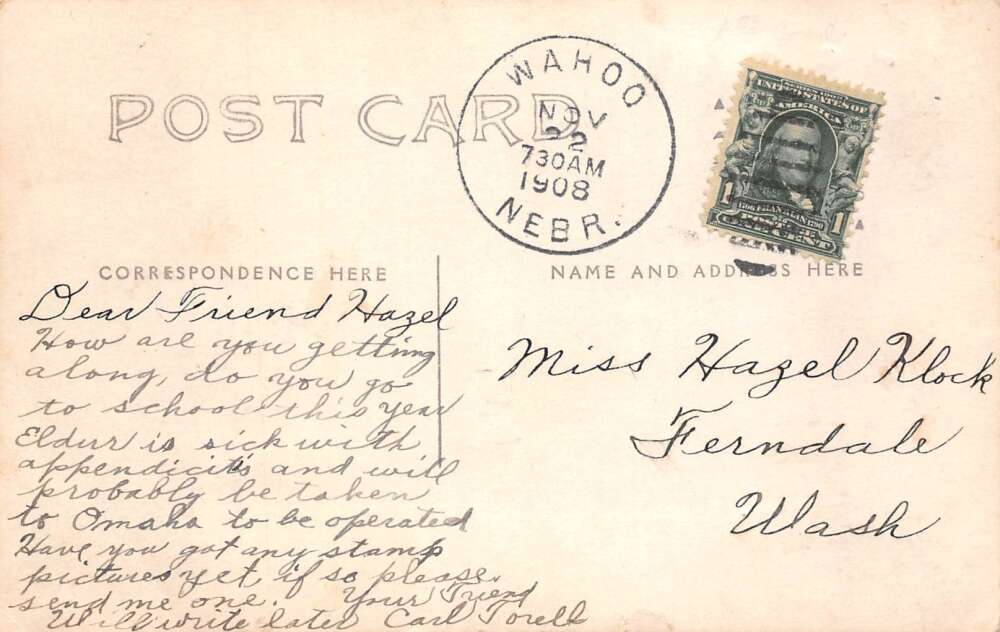 POST CARD
WAHOO
NOV
22
730AM
1908
NEBR.
SERIES 1902
UNITED STATES OF
AMERICA
1 1706 FRANKLIN 1790 1
POSTAGE
ONE CENT
CORRESPONDENCE HERE
Dear Friend Hazel
How are you getting
along, do you go
to school this year
Eldur is sick with
appendicitis and will
probably be taken
to Omaha to be operated
Have you got any stamp
pictures yet if so please
send me one. Your Friend
Will write later Carl Torell
NAME AND ADDRESS HERE
Miss Hazel Klock
Ferndale
Wash